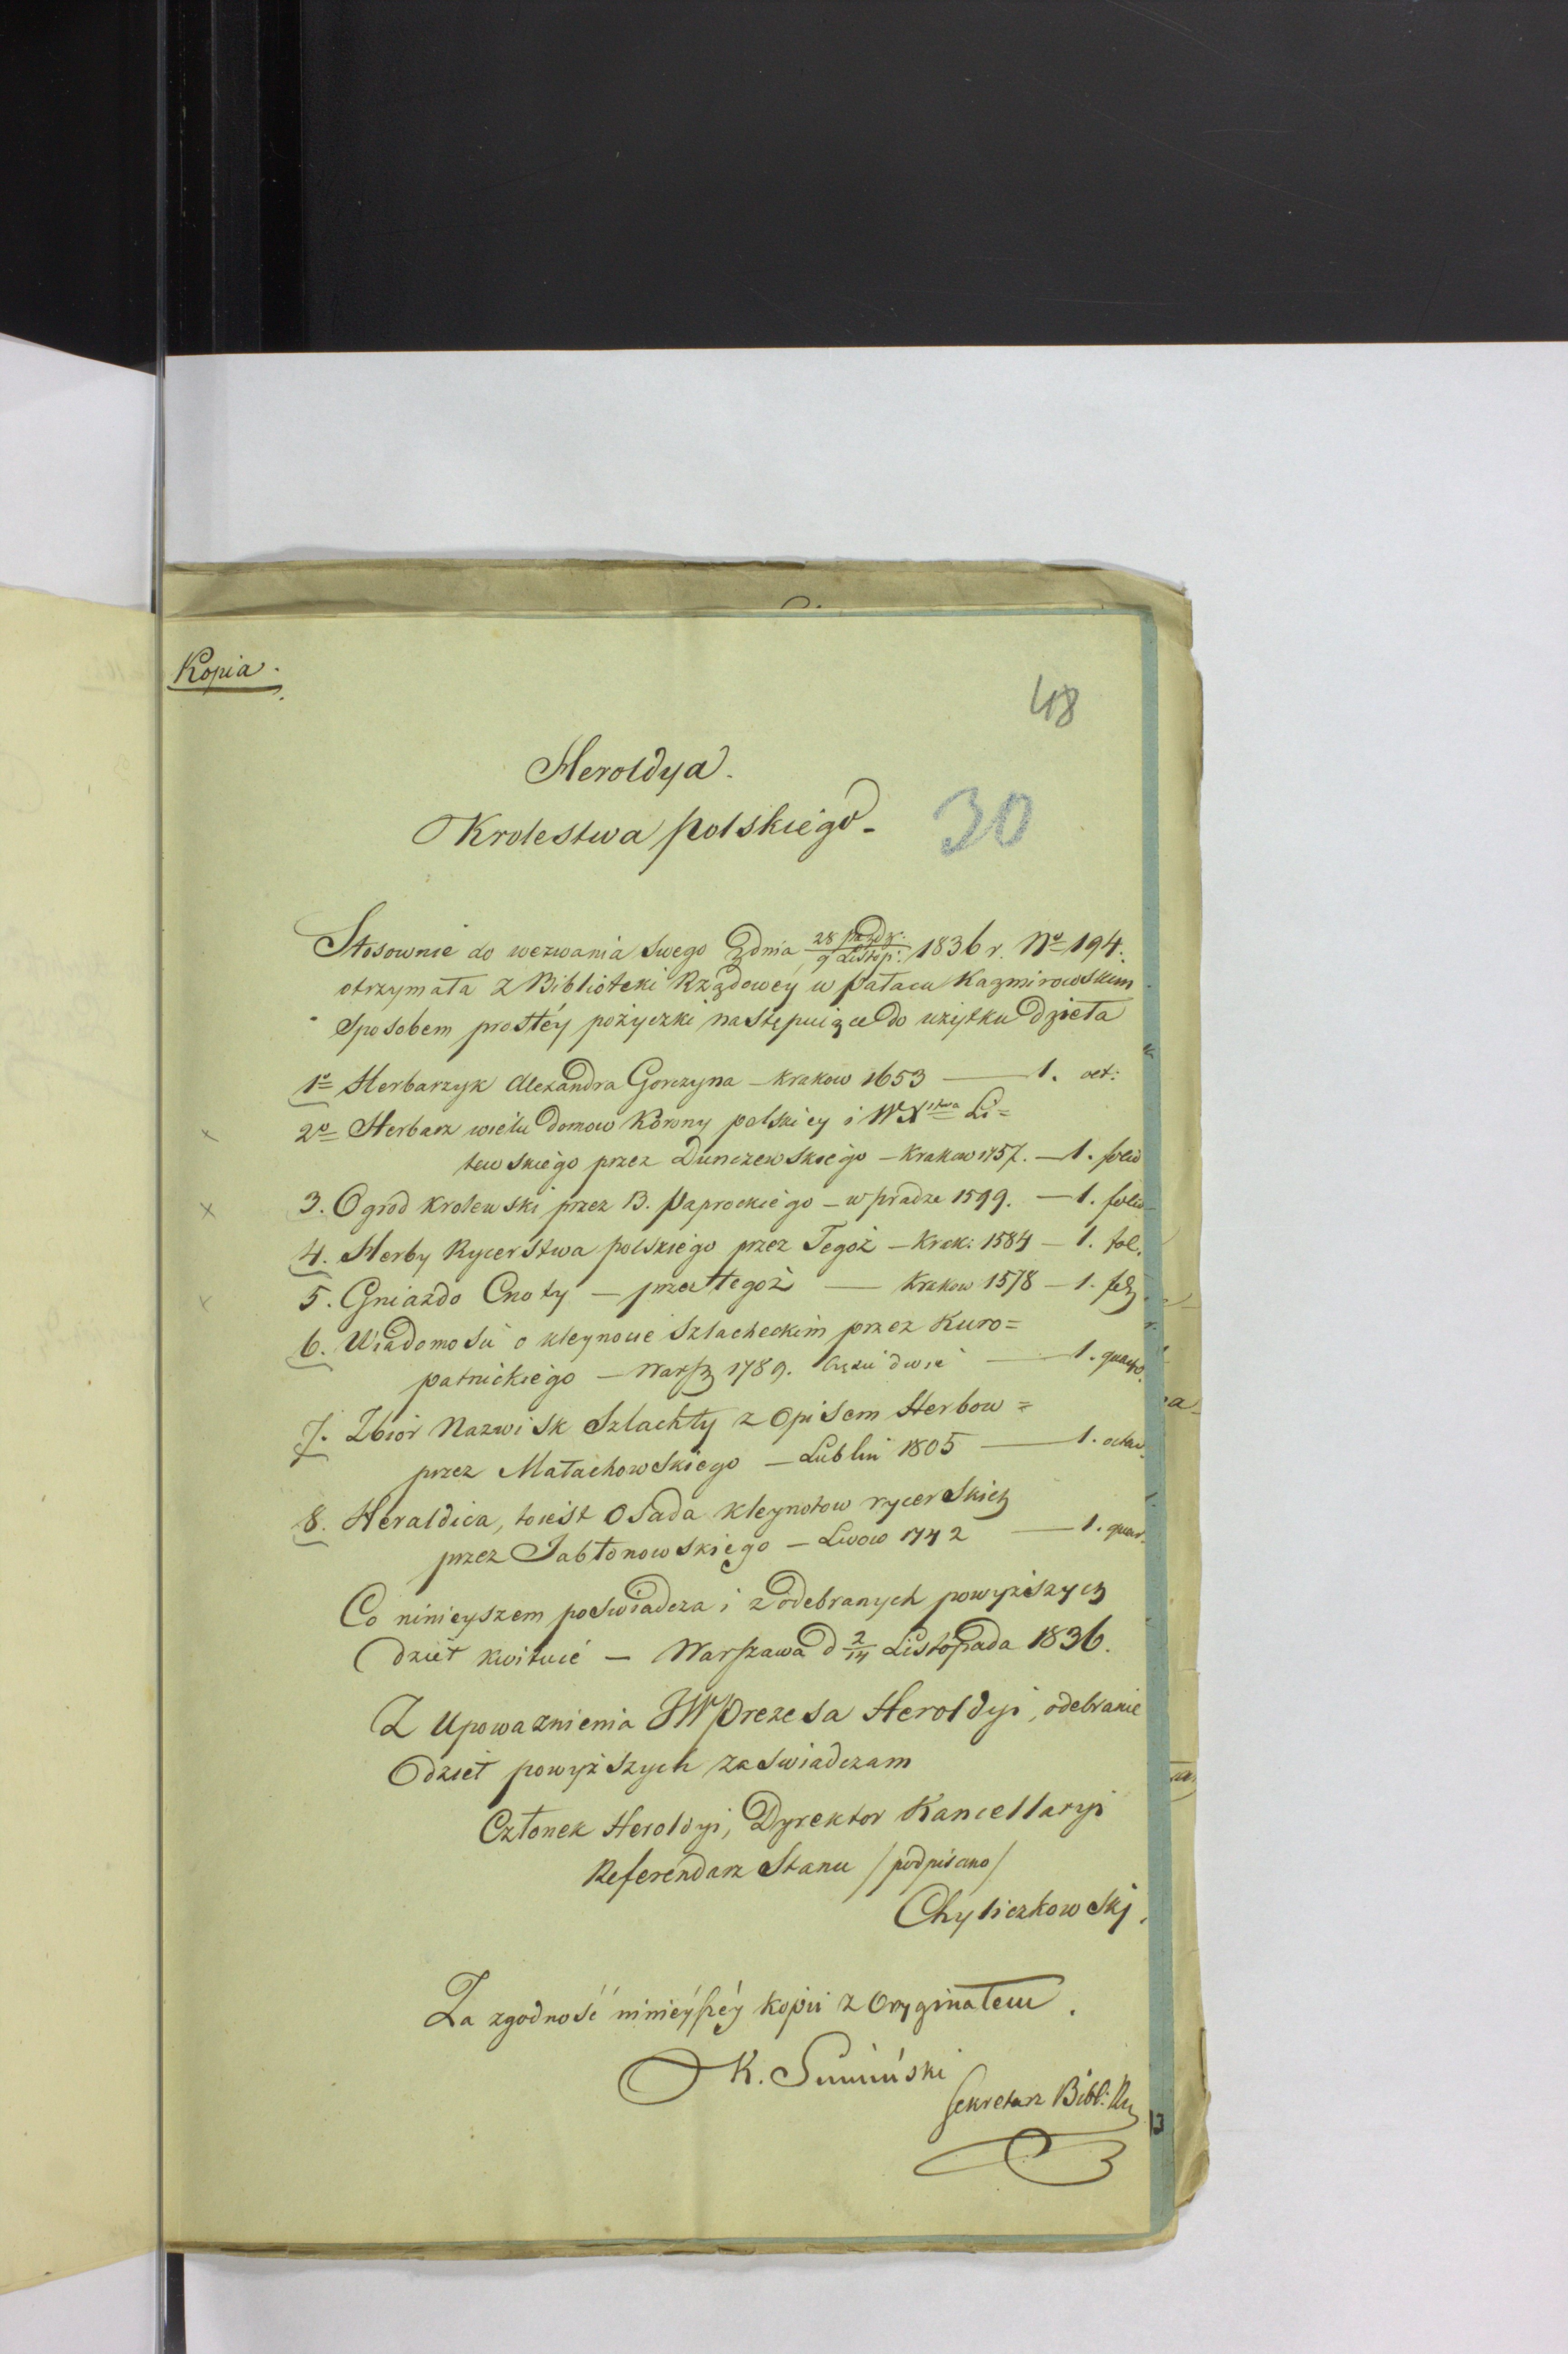 Kopia.
48
Heroldya.
Krolestwa polskiego.
30
Stosownie do wezwania swego z dnia 28 Paźdz:/9 Listop: 1836 r. No 194.
otrzymała z Biblioteki Rządowéy w pałacu Kazmirowskim
sposobem prostéy pożyczki następuiące do użytku dzieła
1o Herbarzyk Alexandra Gorczyna - Krakow 1653 — 1. oct:
2o Herbarz wielu domow Korony polskiey i WXstwa Li=
tewskiego przez Dunczewskiego - Krakow 1757. — 1. folio
3. Ogrod Krolewski przez B. Paprockiego - w Pradze 1599. — 1. folio
4. Herby Rycerstwa polskiego przez Tegoż - Krak: 1584 - 1. fol.
5. Gniazdo Cnoty - przez tegoż — Krakow 1578 - 1. fol
6. Wiadomość o kleynocie Szlacheckim przez Kuro=
patnickiego - Warsz 1789. części dwie — 1. quarto.
7. Zbior Nazwisk Szlachty z Opisem Herbow=
przez Małachowskiego - Lublin 1805 — 1. octav.
8. Heraldica, toiest Osada kleynotow rycerskich
przez Jabłonowskiego - Lwow 1742 — 1. quar.
Co ninieyszem poswiadcza i z odebranych powyższych
dzieł kwituie - Warszawa d 2/14 Listopada 1836.
Z Upoważnienia JW Prezesa Heroldyi, odebranie
dzieł powyższych zaswiadczam
Członek Heroldyi, Dyrektor Kancellaryi
Referendarz Stanu /podpisano/
Chyliczkowski.
Za zgodność ninieyszéy kopii z Oryginałem.
K. Sumiński
Sekretarz Bibl: Rz
13